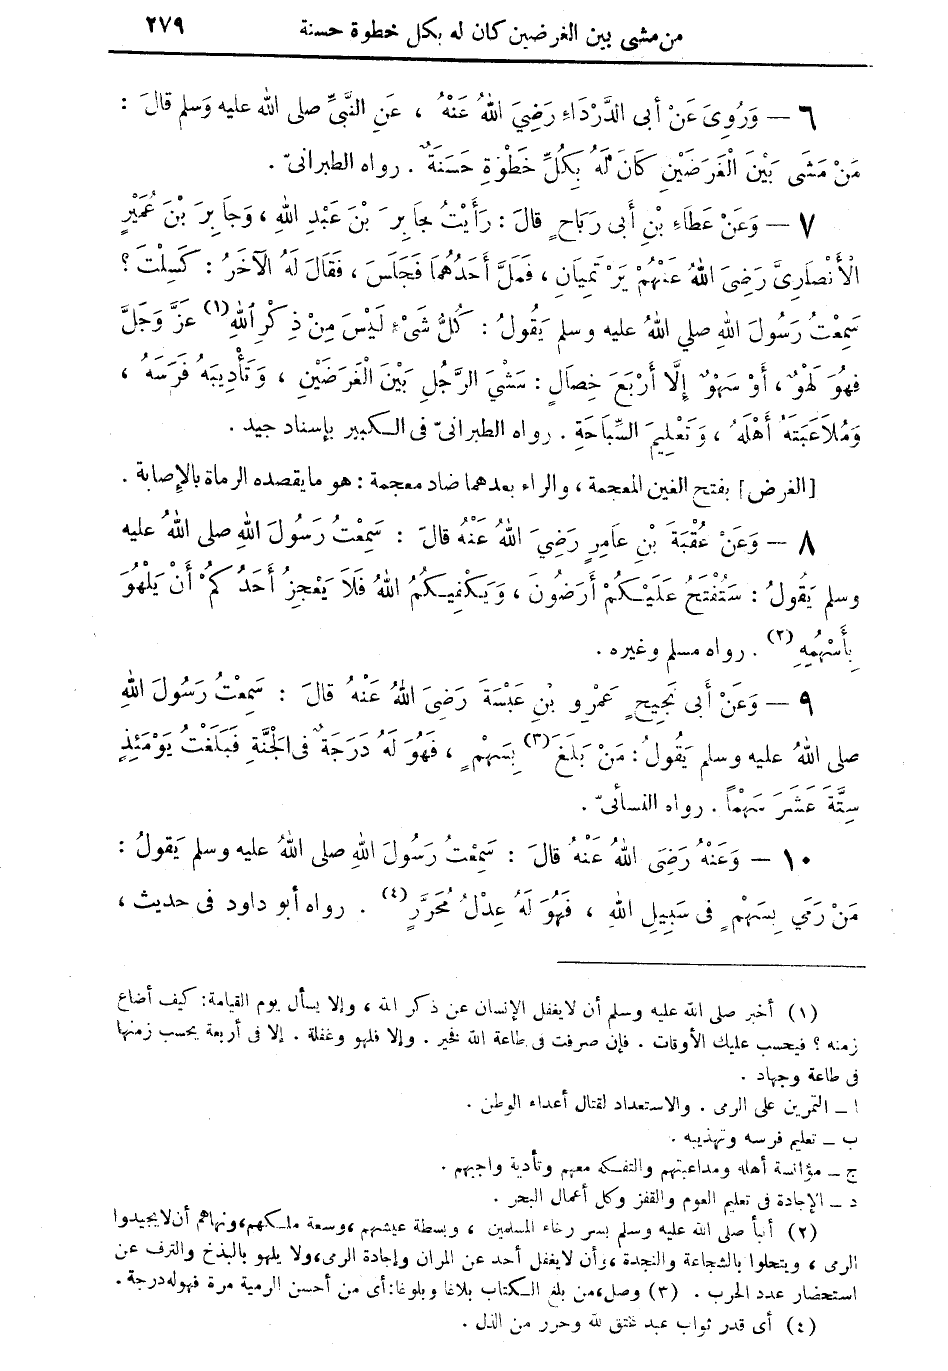 من مشى بين الغرضين كان له بكل خطوة حسنة ٢٧٩
٦ — وَرُوِىَ عَنْ أَبى الدَّرْدَاءِ رَضِيَ اللهُ عَنْهُ ، عَنِ النَّبِيِّ صلى الله عليه وَسلم قالَ :
مَنْ مَشَى بَيْنَ الْغَرَضَيْنِ كَانَ لَهُ بِكُلِّ خَطْوَةٍ حَسَنَةٌ . رواه الطبرانىّ .
٧ — وَعَنْ عَطَاءِ بْنِ أَبى رَبَاحٍ قالَ : رَأَيْتُ جَابِرَ بْنَ عَبْدِ اللهِ ، وَجَابِرَ بْنَ عُمَيْرٍ
الْأَنْصَارِىَّ رَضِىَ اللهُ عَنْهُمْ يَرْتَمِيَانِ ، فَمَلَّ أَحَدُهُمَا فَجَلَسَ ، فَقَالَ لَهُ الآخَرُ : كَسِلْتَ ؟
سَمِعْتُ رَسُولَ اللهِ صلي اللهُ عليه وسلم يَقُولُ : كُلُّ شَىْءٍ لَيْسَ مِنْ ذِكْرِ اللهِ (١) عَزَّ وَجَلَّ
فهُوَ لَهْوٌ ، أَوْ سَهْوٌ إِلَّا أَرْبَعَ خِصَالٍ : مَشْىَ الرَّجُلِ بَيْنَ الْغَرَضَيْنِ ، وَتَأْدِيبَهُ فَرَسَهُ ،
وَمُلَاعَبَتَهُ أَهْلَهُ ، وَتَعْلِيمَ السِّبَاحَةِ . رواه الطبرانىّ فى الكبير بإسناد جيد .
[الغرض] بفتح الغين المعجمة ، والراء بعدهما ضاد معجمة : هو ما يقصده الرماة بالإصابة .
٨ — وَعَنْ عُقْبَةَ بْنِ عَامِرٍ رَضِيَ اللهُ عَنْهُ قالَ : سَمِعْتُ رَسُولَ اللهِ صلى اللهُ عليه
وسلم يَقُولُ : سَتُفْتَحُ عَلَيْكُمْ أَرَضُونَ ، وَيَكْفِيكُمُ اللهُ فَلَا يَعْجِزُ أَحَدُكُمْ أَنْ يَلْهُوَ
بِأَسْهُمِهِ (٢) . رواه مسلم وغيره .
٩ — وَعَنْ أَبى نَجِيحٍ عَمْرِو بْنِ عَبْسَةَ رَضِىَ اللهُ عَنْهُ قالَ : سَمِعْتُ رَسُولَ اللهِ
صلى اللهُ عليه وسلم يَقُولُ : مَنْ بَلَغَ (٣) بِسَهْمٍ ، فَهُوَ لَهُ دَرَجَةٌ فى الْجَنَّةِ فَبَلَغْتُ يَوْمَئِذٍ
سِتَّةَ عَشَرَ سَهْمًا . رواه النسائىّ .
١٠ — وَعَنْهُ رَضِىَ اللهُ عَنْهُ قالَ : سَمِعْتُ رَسُولَ اللهِ صلى اللهُ عليه وسلم يَقُولُ :
مَنْ رَمَي بِسَهْمٍ فى سَبِيلِ اللهِ ، فَهُوَ لَهُ عِدْلُ مُحَرَّرٍ (٤) . رواه أبو داود فى حديث ،
(١) أخبر صلى الله عليه وسلم أن لا يغفل الإنسان عن ذكر الله ، وإلا يسأل يوم القيامة : كيف أضاع
زمنه ؟ فيحسب عليك الأوقات . فإن صرفت فى طاعة الله فخير . وإلا فلهو وغفلة . إلا فى أربعة يحسب زمنها
فى طاعة وجهاد .
ا — التمرين على الرمى . والاستعداد لقتال أعداء الوطن .
ب — تعليم فرسه وتهذيبه .
ج — مؤانسة أهله ومداعبتهم والتفكه معهم وتأدية واجبهم .
د — الإجادة فى تعليم العوم والقفز وكل أعمال البحر .
(٢) أنبأ صلى الله عليه وسلم بسر رخاء المسلمين ، وبسطة عيشهم ، وسعة ملكهم ، ونهاهم أن لا يجيدوا
الرمى ، ويتحلوا بالشجاعة والنجدة ، وأن لا يغفل أحد عن المران وإجادة الرمى ، ولا يلهو بالبذخ والترف عن
استحضار عدد الحرب . (٣) وصل ، من بلغ الكتاب بلاغا وبلوغا : أى من أحسن الرمية مرة فهو له درجة .
(٤) أى قدر ثواب عبد عتق لله وحرر من الذل .